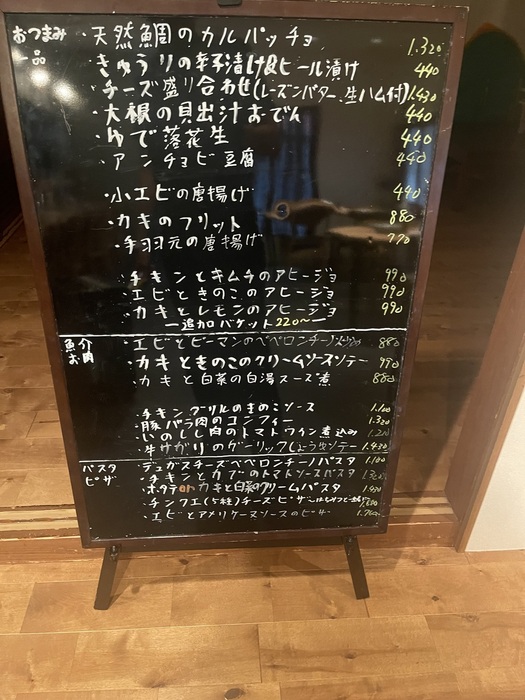 おつまみ ・天然鯛のカルパッチョ 1.320
一品 ・きゅうりの辛子漬け&ビール漬け 440
・チーズ盛り合わせ(レーズンバター、生ハム付) 1.430
・大根の貝出汁おでん 440
・ゆで落花生 440
・アンチョビ豆腐 440
・小エビの唐揚げ 440
・カキのフリット 880
・手羽元の唐揚げ 770
・チキンとキムチのアヒージョ 990
・エビときのこのアヒージョ 990
・カキとレモンのアヒージョ 990
ー追加バケット220〜ー
魚介 ・エビとピーマンのペペロンチーノ炒め 880
お肉 ・カキときのこのクリームソースソテー 990
・カキと白菜の白湯スープ煮 880
・チキングリルのきのこソース 1.100
・豚バラ肉のコンフィー 1.320
・いのしし肉のトマトワイン煮込み
・牛サガリのガーリックしょう油ソテー 1.430
パスタ ・デュガスチーズペペロンチーノパスタ 1.100
ピザ ・チキンとカブのトマトソースパスタ
・ホタテorカキと白菜のクリームパスタ
・チンクエ(5種)チーズピザ
・エビとアメリケーヌソースのピザ